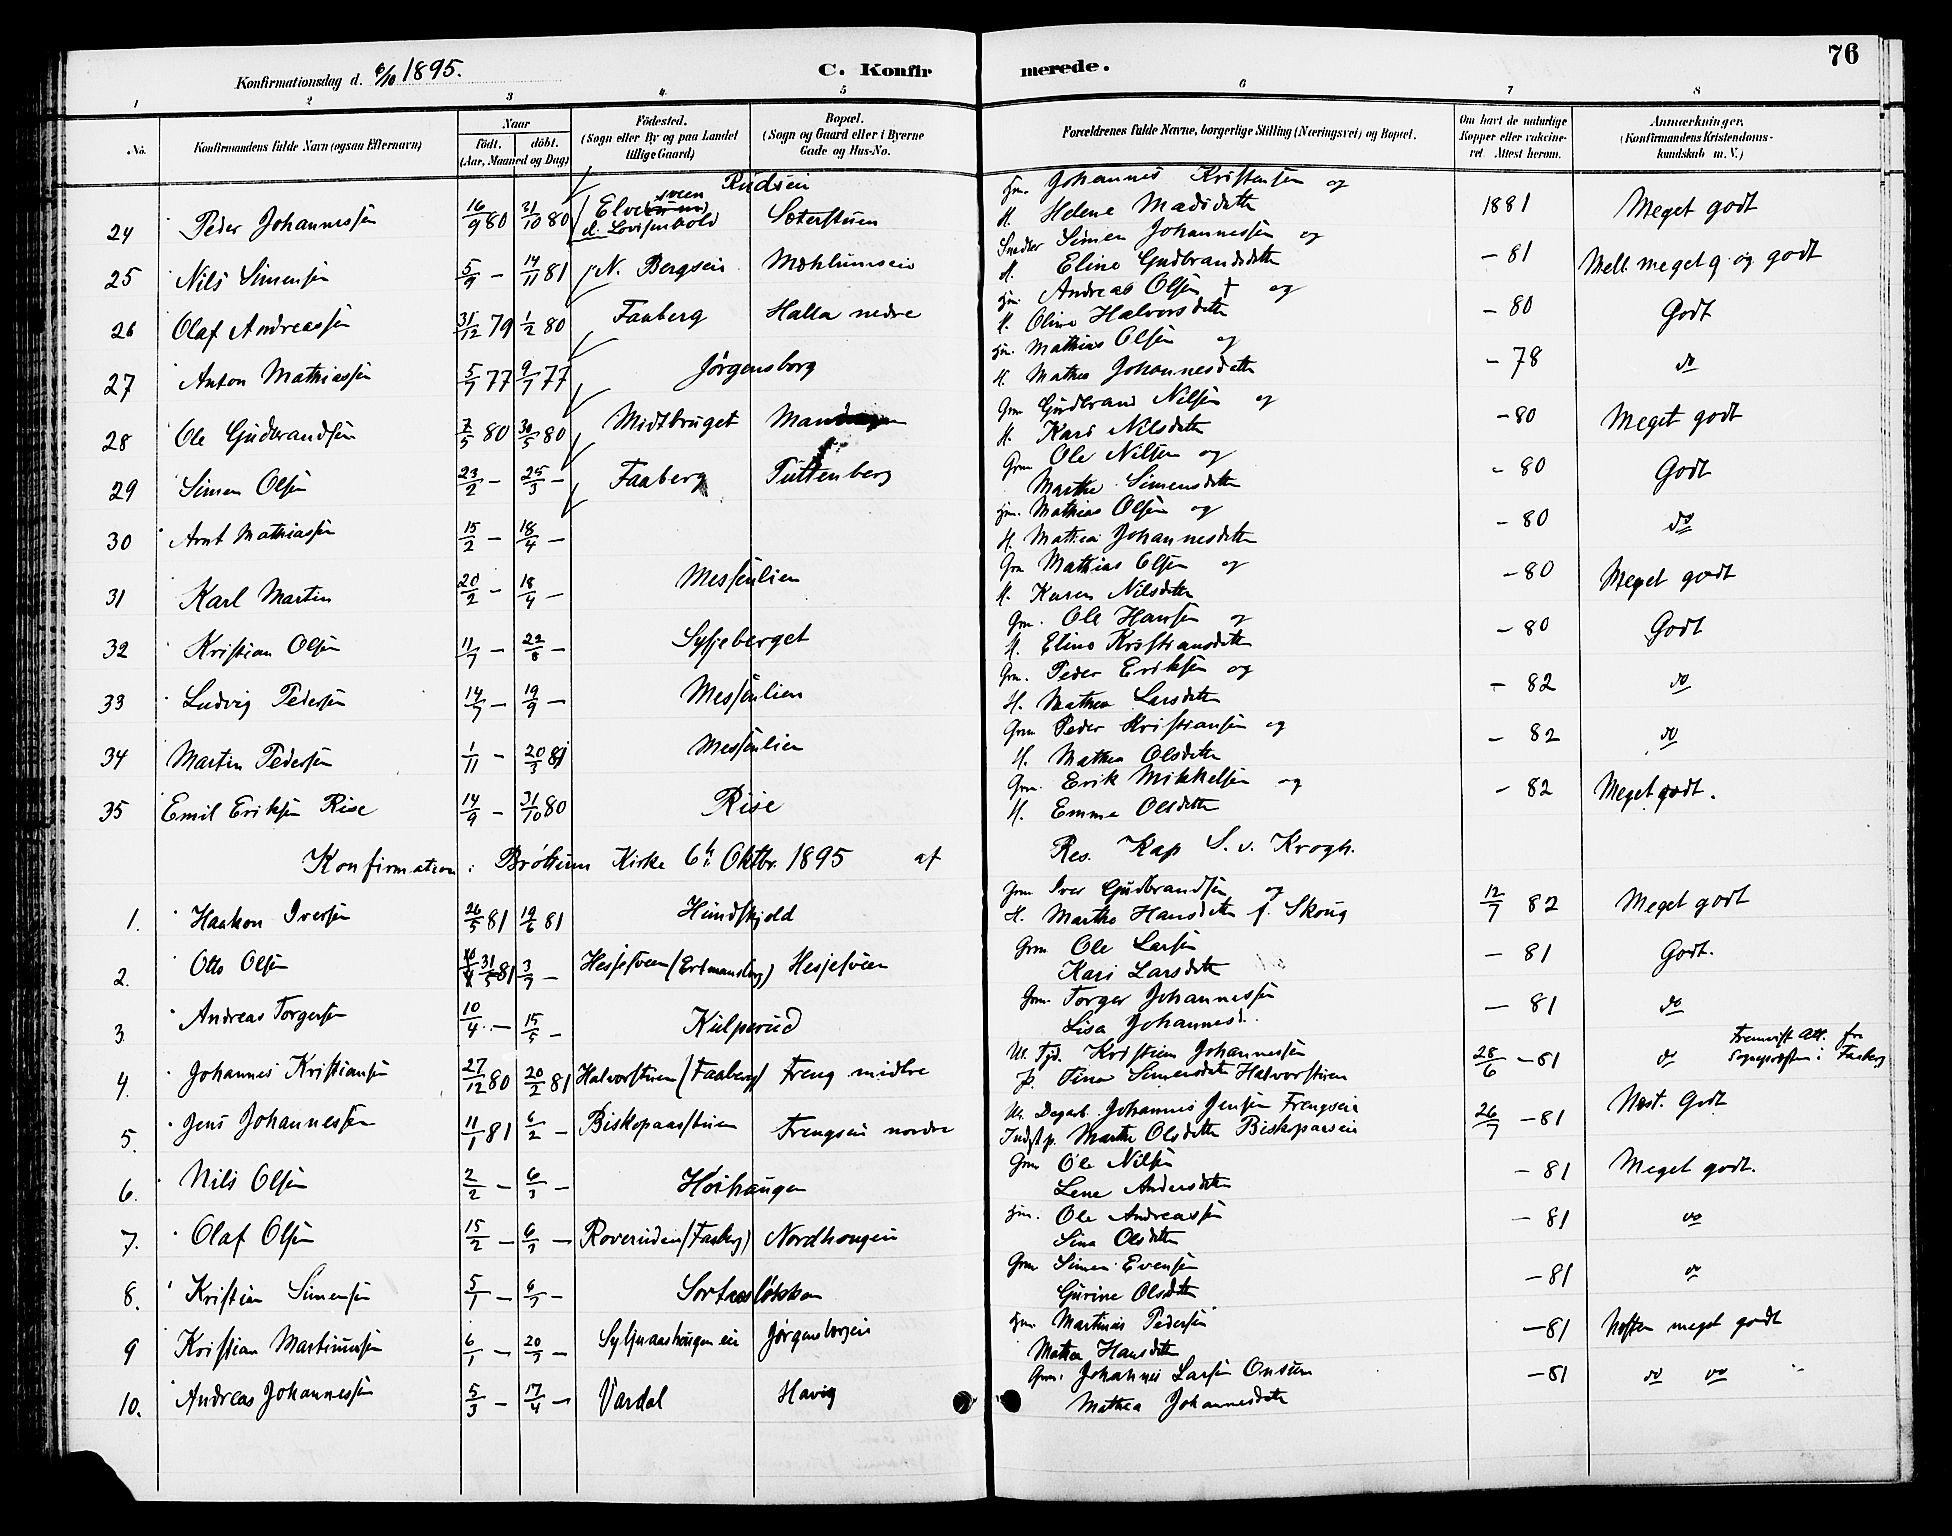 76
Konfirmationsdag d. 6/10 1895. C. Konfirmerede.
1 2 3 4 5 6 7 8
No. Konfirmandens fulde Navn (ogsaa Efternavn) Naar födt. döbt. (Aar, Maaned og Dag) Födested. (Sogn eller By og paa Landet tillige Gaard) Bopæl. (Sogn og Gaard eller i Byerne Gade og Hus-No. Forældrenes fulde Navne, borgerlige Stilling (Næringsvei) og Bopæl. Om havt de naturlige Kopper eller vaccineret. Attest herom. Anmærkninger. (Konfirmandens Kristendomskundskab m. V.)
Rudsein
24 Peder Johannessen 16/9 80 31/10 80 Sæterstuen Hm. Johannes Kristensen og
H. Helene Madsdatter 1881 Meget godt
25 Nils Simensen 5/9 – 14/11 81 N. Bergsein Mæhlumsein Simen Johannessen og
H. Eline Gudbrandsdatter – 81 Mell. meget g. og godt
26 Olaf Andreassen 31/12 79 1/2 80 Faaberg Halla nedre Hm. Andreas Olsen † og
H. Oline Halvorsdatter – 80 Godt
27 Anton Mathiassen 5/7 77 9/7 77 Jörgensborg Hm. Mathias Olsen og
H. Mathea Johannesdatter – 78 do
28 Ole Gudbrandsen 7/5 80 30/5 80 Midtbruget Gm Gudbrand Nilsen og
H. Kari Nilsdatter – 80 Meget godt
29 Simen Olsen 23/2 – 25/3 – Faaberg Tuttenberg Gm Ole Nilsen og
Marthe Simensdatter – 80 Godt
30 Arnt Mathiassen 15/2 – 18/4 – Hm. Mathias Olsen og
H. Mathea Johannesdatter – 80 do
31 Karl Martin 20/2 – 18/4 – Messenlien Gm Mathias Olsen og
H. Karen Nilsdatter – 80 Meget godt
32 Kristian Olsen 11/7 – 22/8 – Syljeberget Gm. Ole Hansen og
H. Eline Kristiansdatter – 80 Godt
33 Ludvig Pedersen 14/7 – 19/9 – Messenlien Gm. Peder Eriksen og
H. Mathea Larsdatter – 82 do
34 Martin Pedersen 1/11 – 20/3 81 Messenlien Gm Peder Kristiansen og
H. Mathea Olsdatter – 82 do
35 Emil Eriksen Rise 14/9 – 31/10 80 Rise Gm. Erik Mikkelsen og
H. Emma Olsdatter – 82 Meget godt.
Konfirmation i Bröttum Kirke 6te Oktbr. 1895 af Res. Kap S. v. Krogh.
1. Haakon Iversen 26/5 81 19/6 81 Hundskjold Gm Iver Gudbrandsen og
H. Marthe Hansdatter f. Skoug 12/7 82 Meget godt
2. Otto Olsen 31/5 81 3/7 – Hesjesveen (Ertmansberg) Hesjesveen Gm Ole Larsen
Kari Larsdatter – 81 Godt.
3. Andreas Torgersen 10/4 – 15/5 – Kulperud Gm. Torger Johannessen
Lisa Johannesd. – 81 do
4. Johannes Kristiansen 27/12 80 20/2 81 Halvorstuen (Faaberg) Freng midtre Ut. Tjd. Kristian Johannessen
p. Tina Simensdatter Halvorstuen 28/6 – 81 do Fremvist Att. fra Sognepræsten i Faaberg
5. Jens Johannessen 11/1 81 6/2 – Biskopaasstuen Frengsein nordre Ut. Dagarb. Johannes Jensen Frengsein
Indst. p. Marthe Olsdatter Biskopaasein 26/7 – 81 Næst. Godt
6. Nils Olsen 2/2 – 6/3 – Höihaugen Gm Ole Nilsen
Lene Andersdatter – 81 Meget godt.
7. Olaf Olsen 15/2 – 6/3 – Roveruden (Faaberg) Nordhougen Hm. Ole Andreassen
Sina Olsdatter – 81 do
8. Kristian Simensen 5/1 – 6/3 – Sortaaslökken Gm Simen Evensen
Gurine Olsdatter – 81 do
9 Kristian Martinussen 6/1 – 20/3 – Syljuaashougen ein Jörgensborgein Hm. Martinus Pedersen
Mathea Hansdatter – 81 Næsten meget godt
10. Andreas Johannessen 5/3 – 17/4 – Vardal Havig Gm. Johannes Larsen Onsum
Mathea Johannesdatter – 81 do do